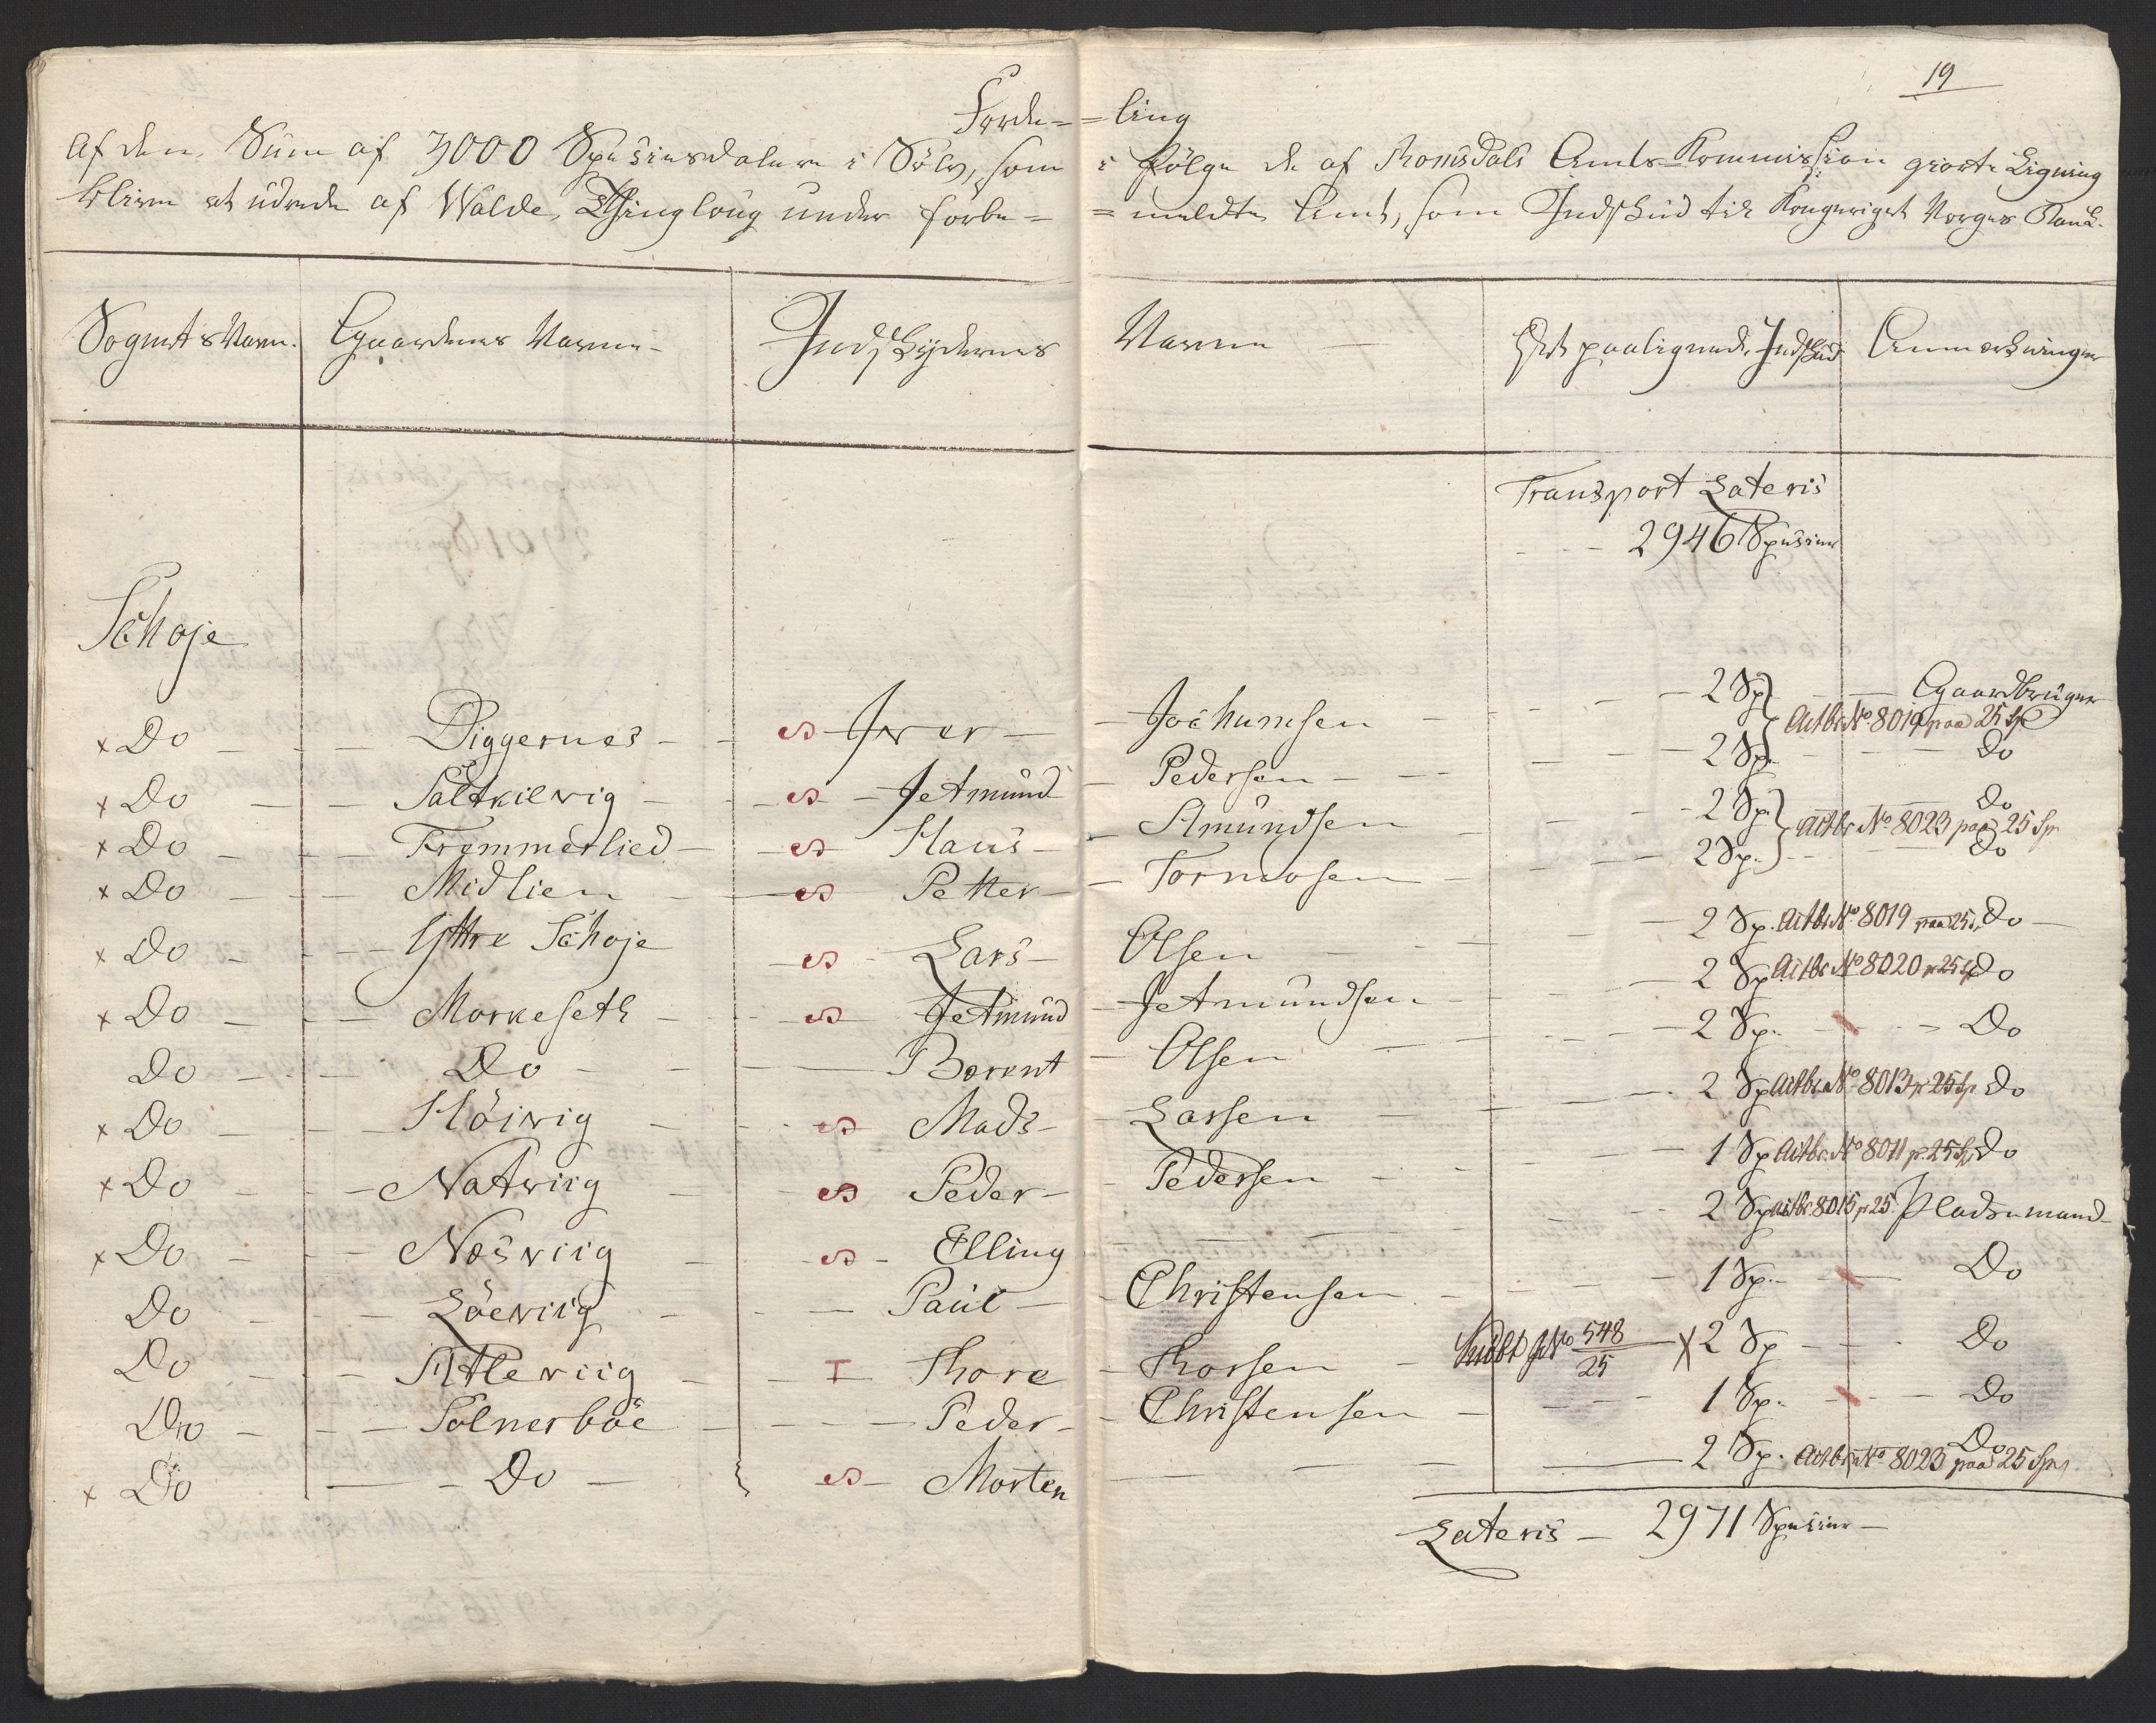 19
Forde= =ling
Af den Sum af 3000 Speciesdalere i Sølv, som i Følge de af Romsdals Amts-Kommission giorte Ligning
bliver at udrede af Wolde Thinglaug under forbe= =meldte Amt, som Indskud til Kongeriget Norges Bank.
Sognets Navn. Gaardenes Navne- Indskydernes Navne — Det paalignede Indskud Anmærkninger
Transport Lateris
2946 Species
Schoje
x Do Diggernes Iver Jochumsen 2 Sp. Gaardbruger
Actbr. No 8019 paa 25 Sp
x Do Saltkilvig Jetmund Pedersen 2 Sp. Do
x Do Frommerlied Hans Amundsen 2 Sp. Do
Actbr. No 8023 paa 25 Sp.
x Do Midlien Petter Tormosen 2 Sp. Do
x Do Yttre Schoje Lars Olsen 2 Sp. Actbr. No 8019 paa 25 Do
x Do Morkeseth Jetmund Jetmundsen 2 Sp. Actbr. No 8020 p 25 Sp Do
Do Do Berent Olsen 2 Sp. Do
x Do Höivig Mads Larsen 2 Sp. Actbr. No 8013 p 25 Sp. Do
x Do Natviig Peder Pedersen 1 Sp. Actbr. No 8011 p. 25 Sp Do
x Do Nœsviig Elling 2 Sp. actbr. 8015 p 25. Pladsemand
Do Löeviig Paul Christensen 1 Sp. Do
Do Sætleviig I Thore Thorsen No 548/25 x 2 Sp Do
Do Solnerböe Peder Christensen 1 Sp. Do
x Do Do Morten 2 Sp. Do
Actbr. No 8023 paa 25 Sp.
Lateris - 2971 Species